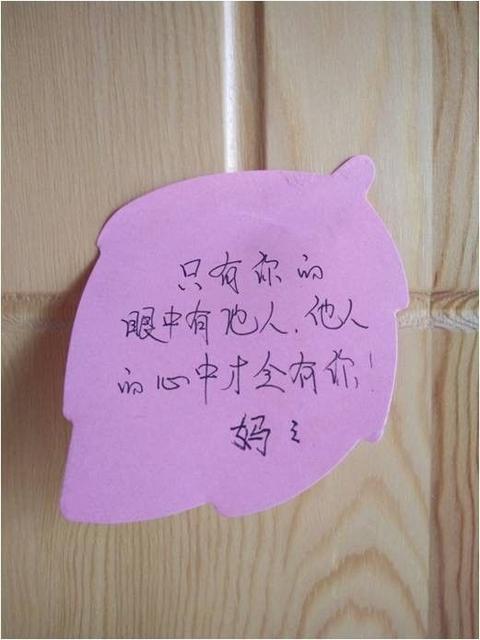 只有你的
眼中有他人.他人
的心中才会有你!
妈妈